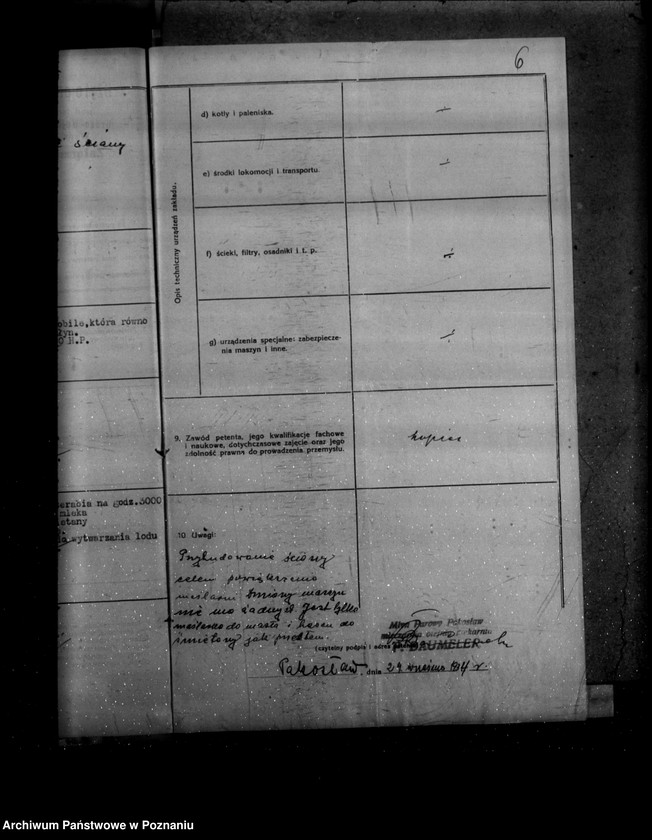 6
ściany
obilę,która równo
łyn.
0 H.P.
erabia na godz.3000
mleka
etany
wytwarzania lodu
Opis techniczny urządzeń zakładu.
d) kotły i paleniska.
e) środki lokomocji i transportu.
f) ścieki, filtry, osadniki i t. p.
g) urządzenia specjalne: zabezpiecze-
nia maszyn i inne.
9. Zawód petenta, jego kwalifikacje fachowe
i naukowe, dotychczasowe zajęcie oraz jego
zdolność prawna do prowadzenia przemysłu.
kupiec
10 Uwagi:
Przybudowanie ściany
celem powiększenia
maślarni zmiany maszyn
nie ma żadnych. Jest tylko
do masła i do
śmietany jak przedtem.
Młyn Parowy Pakosław
BAUMELER
(czytelny podpis i adres
Pakosław, dnia 29 września 1934 r.
Archiwum Państwowe w Poznaniu